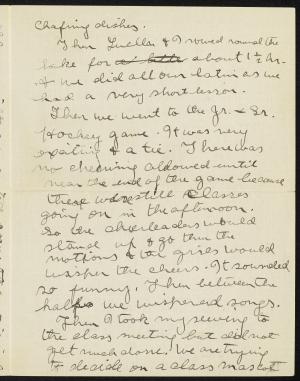 Chafing dishes.
Then Luella & I rowed round the
lake for about 1 1/2 hr.
& we did all our latin as we
had a very short lesson.
Then we went to the Jr. & Sr.
Hockey game. It was very
exciting & a tie. There was
no cheering allowed until
near the end of the game because
there were still classes
going on in the afternoon.
So the cheerleaders would
stand up & go thru the
motions & the girls would
whisper the cheers. It sounded
so funny. Then between the
halfs we whispered songs.
Then I took my sewing to
the class meeting but did not
get much done. We are trying
to decide on a class mascot